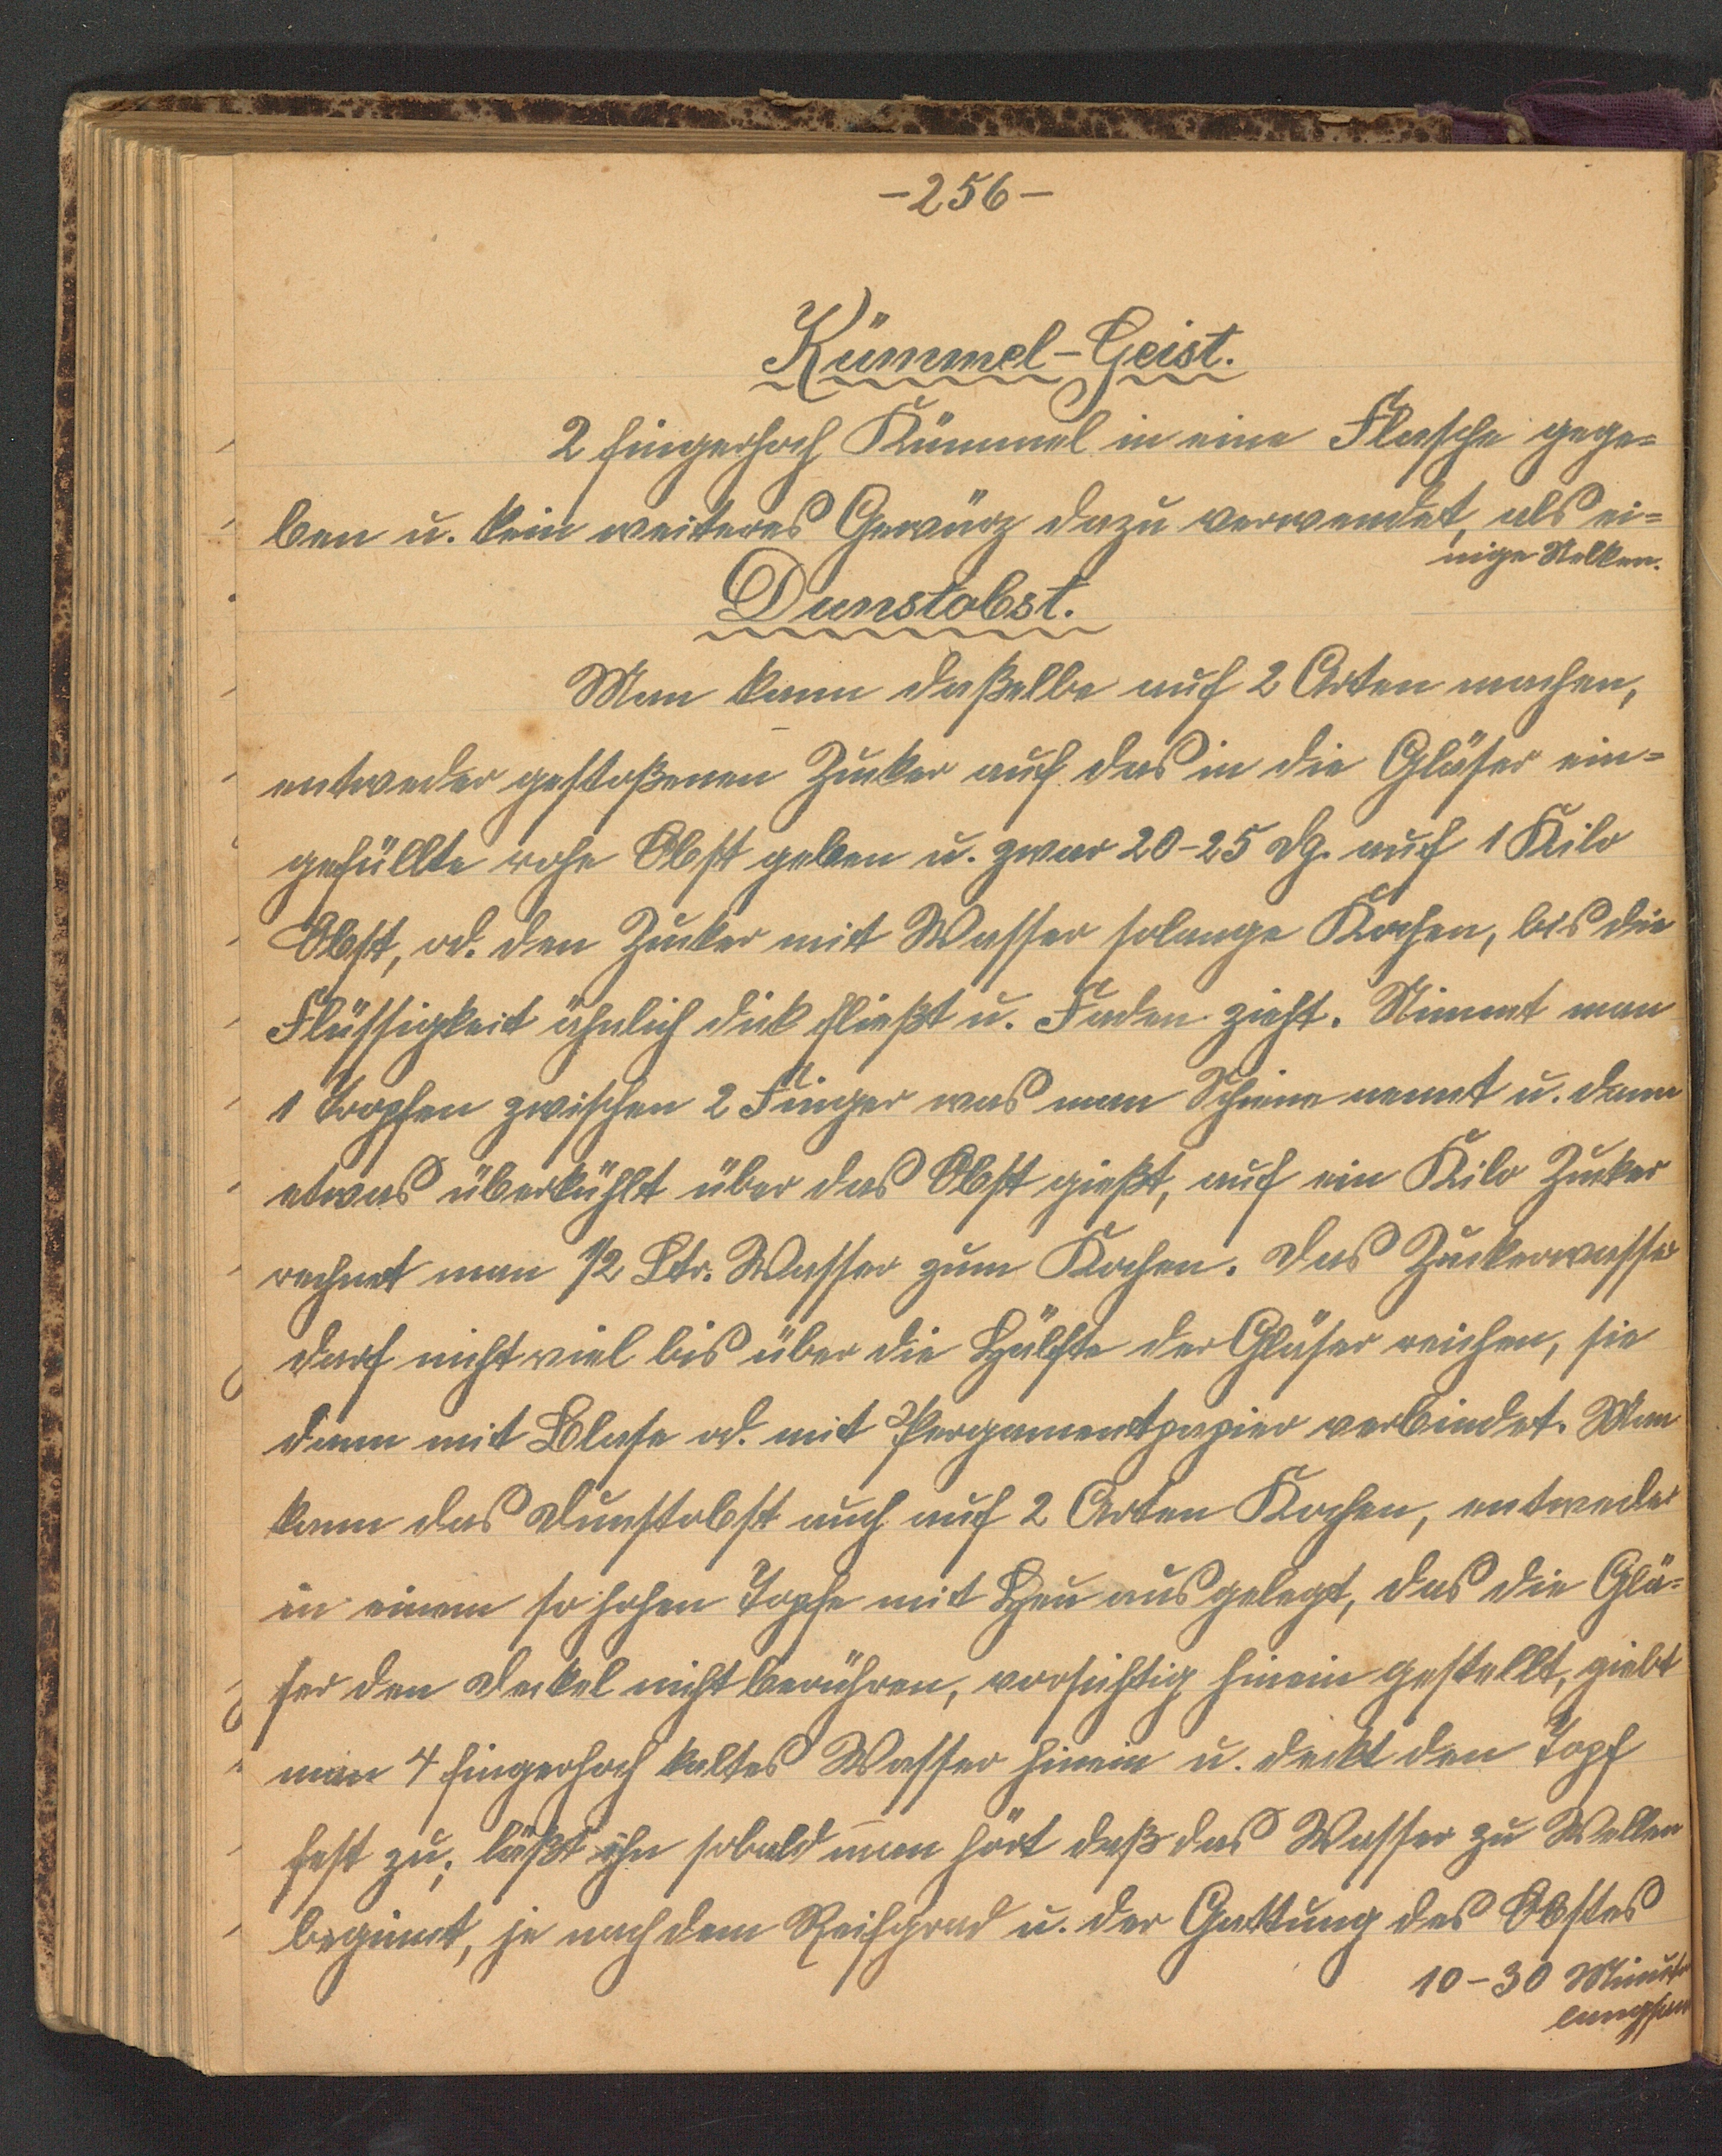 -256-
Kümmel-Geist.
2 fingerhoch Kümmel in eine Flasche gege=
ben u. kein weiteres Gewürz dazu verwendet, als ei=
nige Nelken.
Dunstobst.
Man kann daßelbe auf 2 Arten machen,
entweder gestoßenen Zucker auf das in die Gläser ein=
gefüllte rohe Obst geben u. zwar 20-25 dg. auf 1 Kilo
Obst, od. den Zucker mit Wasser solange Kochen, bis die
Flüssigkeit ähnlich dick fließt u. Faden zieht. Nimmt man
1 Tropfen zwischen 2 Finger was man Schine nennt u. dann
etwas überkühlt über das Obst gießt, auf ein Kilo Zucker
rechnet man 1/2 Ltr. Wasser zum Kochen. Das Zuckerwasser
darf nicht viel bis über die Hälfte der Gläser reichen, sie
dann mit Blase od. mit Pergamentpapier verbindet. Man
kann das Dunstobst auch auf 2 Arten Kochen, entweder
in einem so hohen Topfe mit Heu ausgelegt, das die Glä=
ser den Deckel nicht berühren, vorsichtig hinein gestellt, giebt
man 4 fingerhoch kaltes Wasser hinein u. deckt den Topf
fest zu; läßt ihn sobald man hört daß das Wasser zu Wellen
beginnt, je nach dem Reifgrad u. der Gattung des Obstes
10-30 Minute
langsam